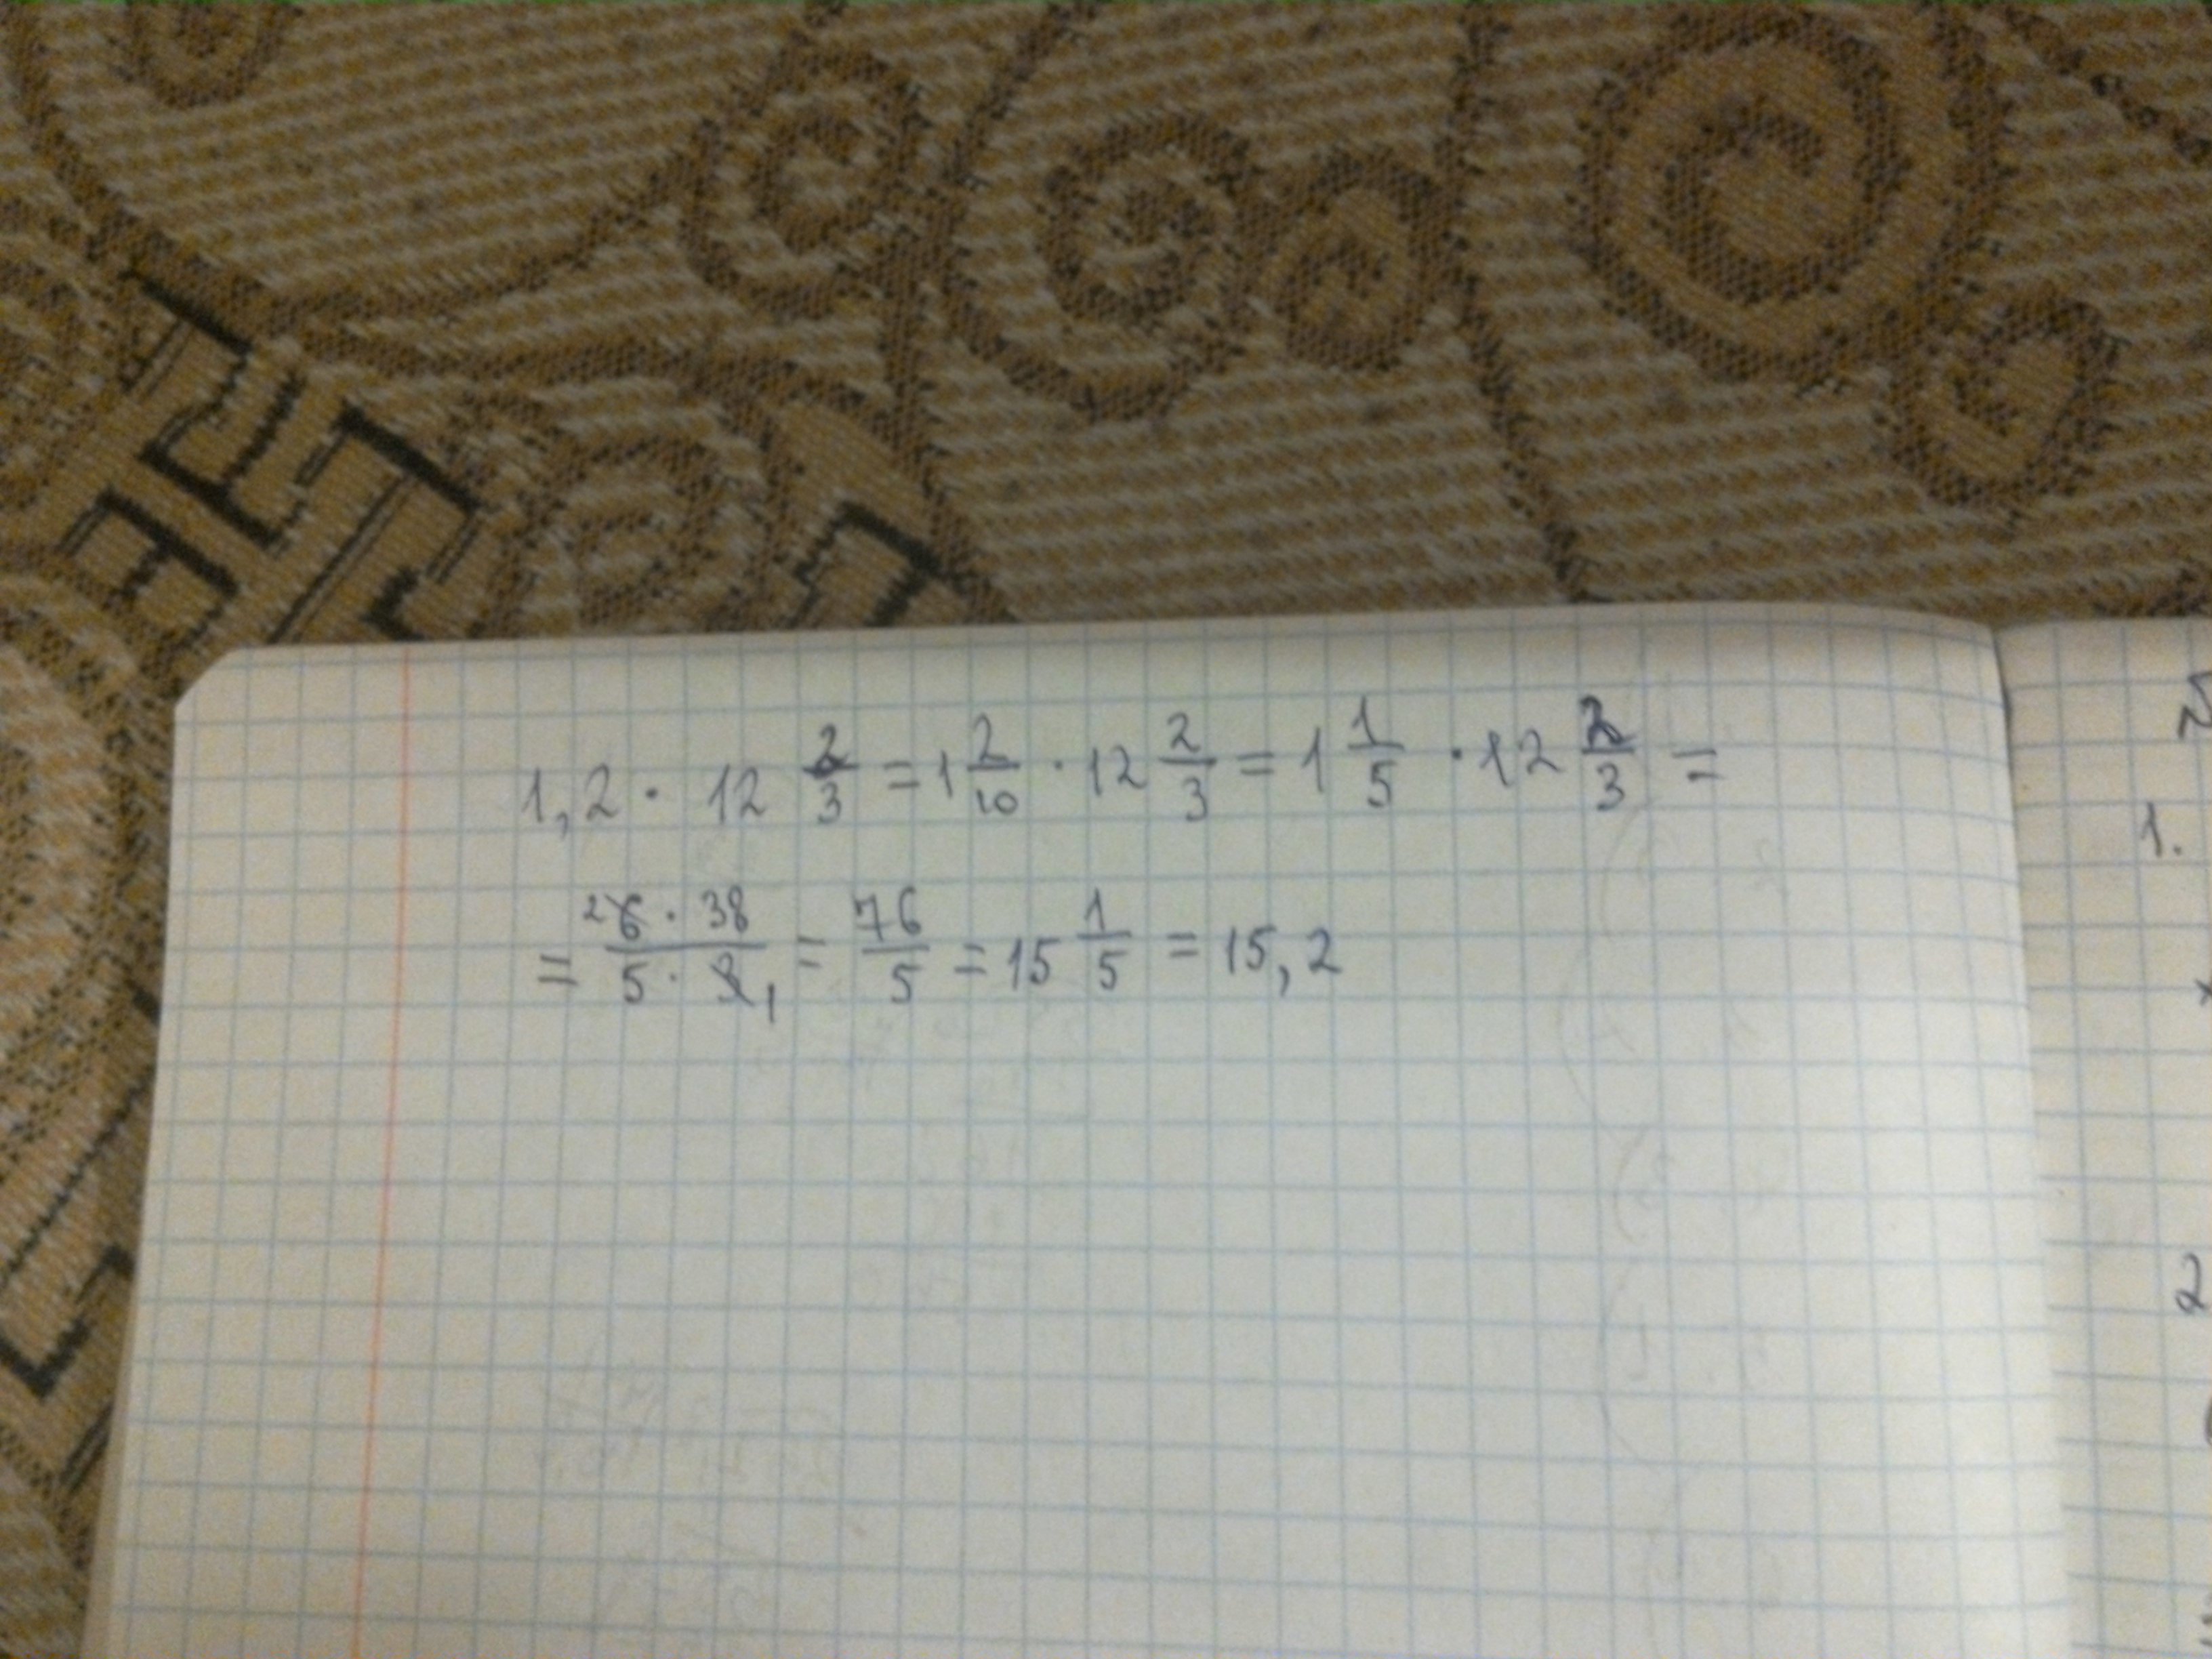 1,2 · 12 2/3 = 1 2/10 · 12 2/3 = 1 1/5 · 12 2/3 =
= 2 6 · 38 / 5 · 3 1 = 76/5 = 15 1/5 = 15,2
1.
2